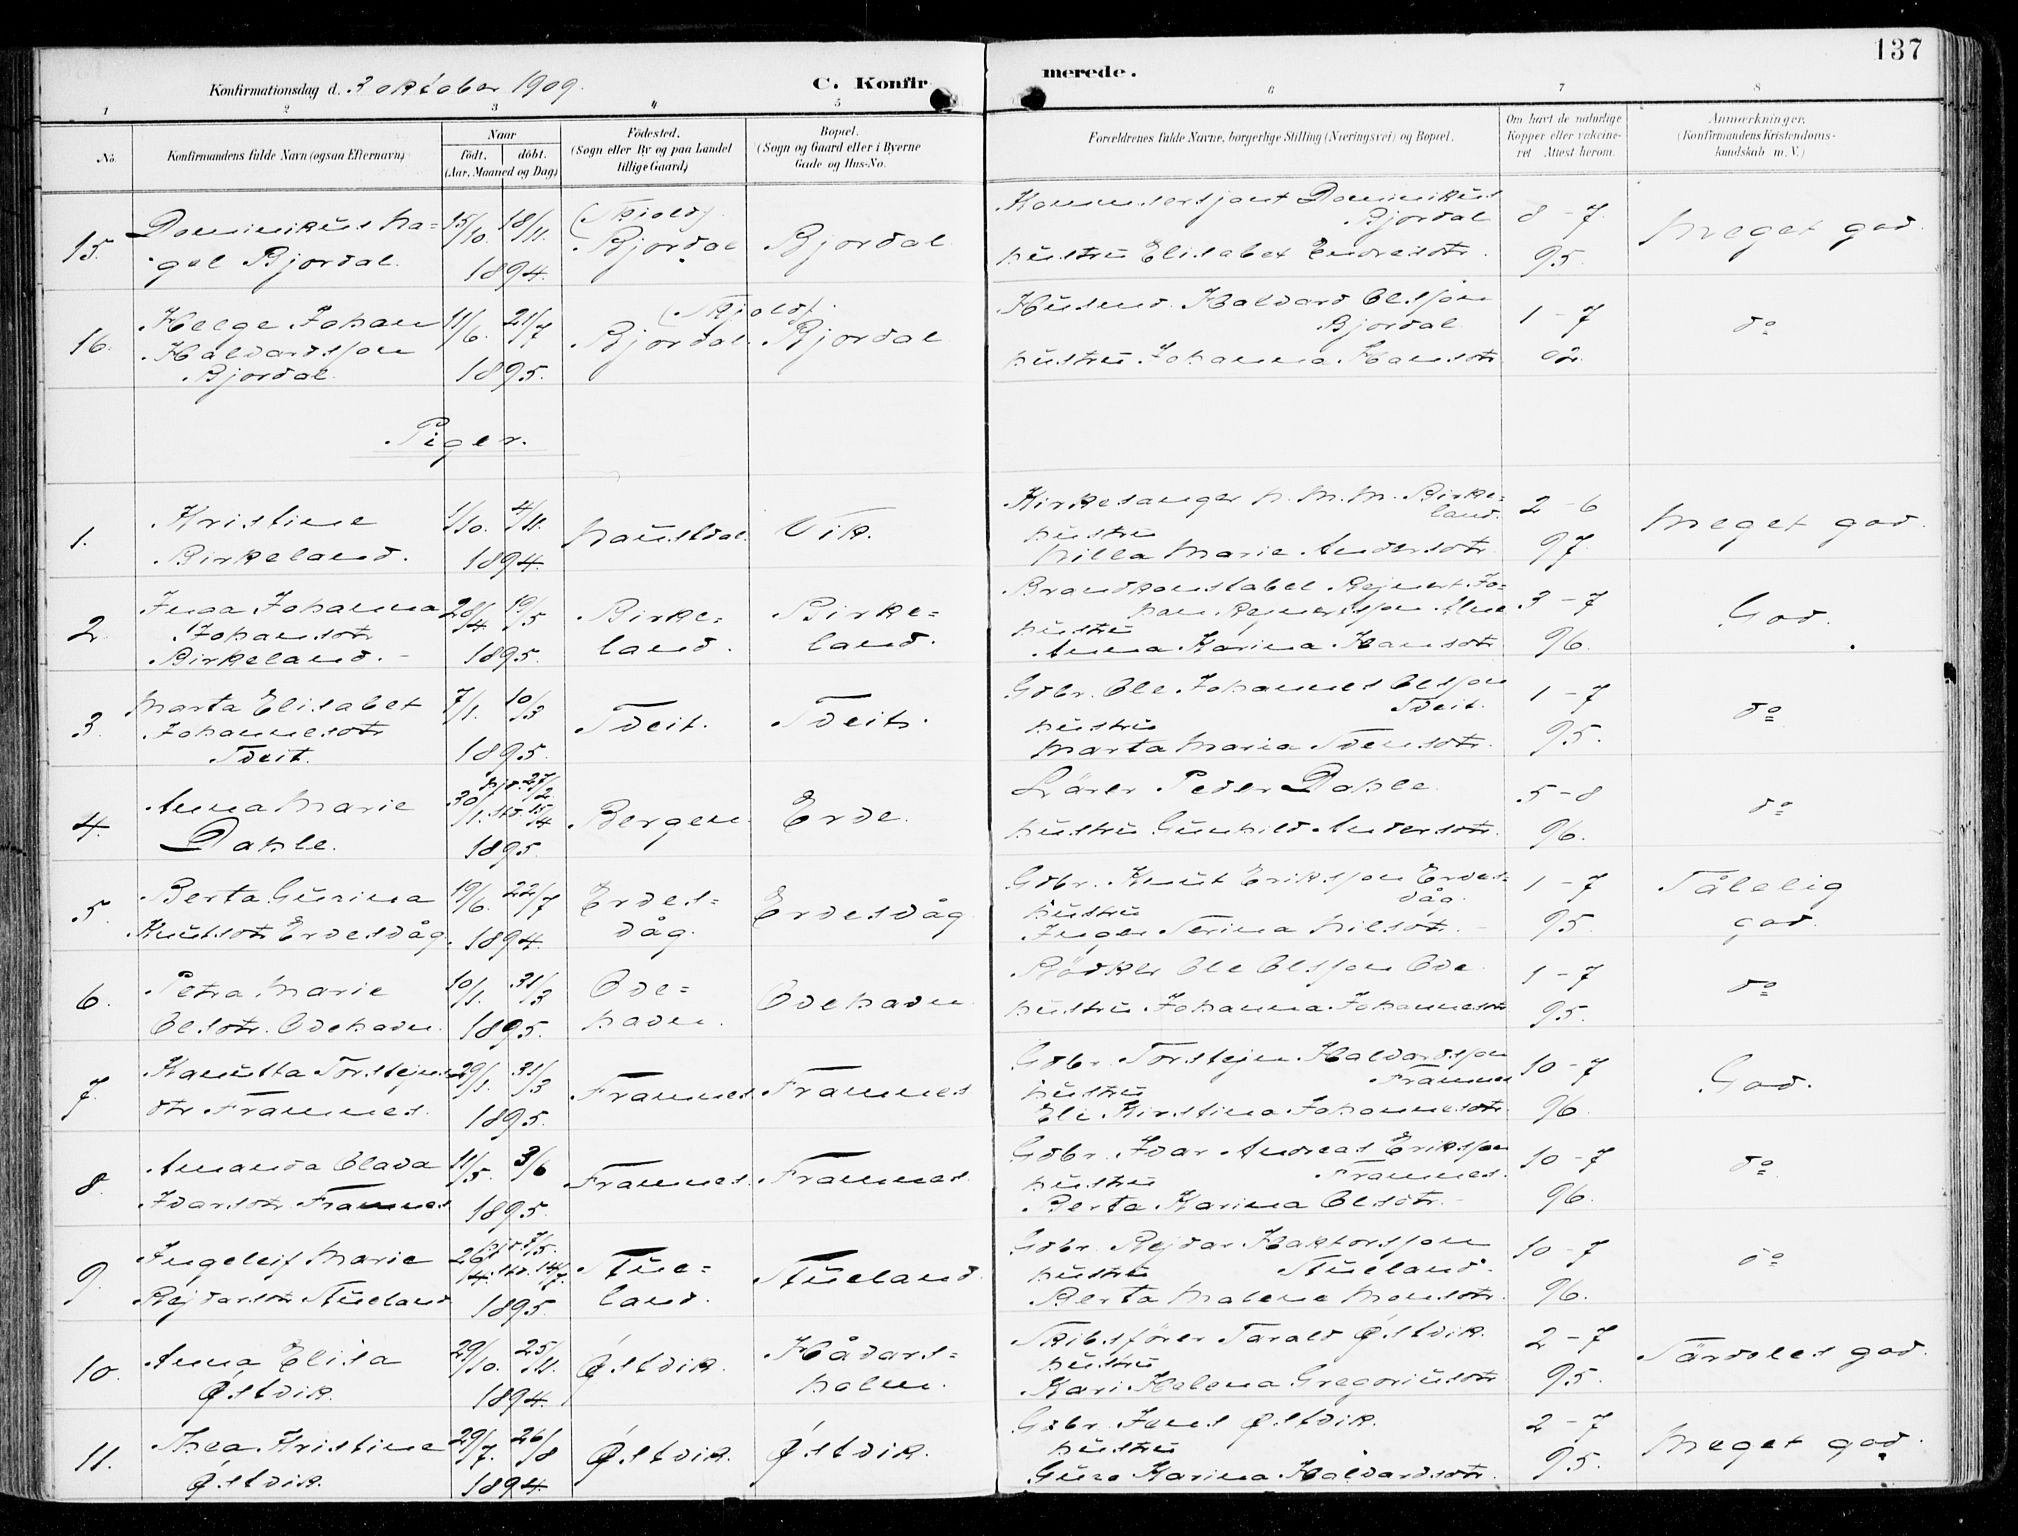 137
Konfirmationsdag d. 3 oktober 1909.
C. Konfirmerede.
1 2 3 4 5 6 7 8
No. Konfirmandens fulde Navn (ogsaa Efternavn) Naar født, døbt. (Aar, Maaned og Dag) Fødested. (Sogn eller By og paa Landet tillige Gaard) Bopæl. (Sogn og Gaard eller i Byerne Gade og Hus-No. Forældrenes fulde Navne, borgerlige Stilling (Næringsvei) og Bopæl. Om havt de naturlige Kopper eller vakcineret Attest herom. Anmærkninger. (Konfirmandens Kristendomskundskab m. V.)
15. Dominikus Nagel Bjordal. 15/10. 18/11. 1894. (Skjold) Bjordal Bjordal. Dominikus Bjordal hustru Elisabet Endresdtr. 8-7 95. Meget god.
16. Helge Johan Halvardsson Bjordal. 11/6. 21/7 1895. (Skjold) Bjordal. Bjordal Husmd. Halvard Olsson Bjordal hustru Johanna Hansdtr. 1-7 02. do
Piger.
1. Kristine Birkeland. 1/10. 4/11. 1894. Naustdal Vik. Kirkesanger N. M. M. Birkeland. hustru Nilla Marie Andersdtr. 2-6 97 Meget god.
2. Inga Johanna Johansdtr Birkeland. 28/4. 19/5 1895. Birkeland. Birkeland. Brandkonstabel Rejnert Johan Rejnertsson hustru Anna Karina Hansdtr 3-7 96. God.
3. Marta Elisabet Johannesdtr Tveit. 7/1. 10/3 1895. Tveit. Tveit. Gdbr. Ole Johannes Olsson Tveit. hustru Marta Maria Svensdtr. 1-7 95. do
4. Anna Marie Dahle. 30/1. hjd. 27/2. std. 15/4 1895. Bergen Erve. Lärer Peder Dahle. hustru Gunhild Andersdtr. 5-8 96. do
5. Berta Gurina Knutsdtr Ervesvåg. 19/6. 22/7 1894. Ervesvåg. Ervesvåg Gdbr. Knut Eriksson Ervesvåg. hustru Inger Serina Nilsdtr. 1-7 95. Tålelig god.
6. Petra Marie Olsdtr. Ovehavn. 10/1. 31/3 1895. Ovehavn. Ovehavn Bödker Ole Olsson Ove hustru Johanna Johannesdtr 1-7 95. do
7. Hanutta Torstejnsdtr Framnes. 29/1. 31/3 1895. Framnes. Framnes Gdbr. Torstejn Halvardsson Framnes hustru Eli Kirstina Johannesdtr 10-7 96. God.
8. Amanda Olava Ivarsdtr. Framnes 11/5. 3/6 1895. Framnes. Framnes. Gdbr. Ivar Andreas Eriksson Framnes. hustru Berta Karina Olsdtr. 10-7 96. do
9. Ingeleif Marie Rejdarsdtr Stueland 26/4. hjd. 7/5. std. 14/7. 1895. Stueland. Stueland. Gdbr. Rejdar Haktorsson Stueland. hustru Berta Malene Monsdtr. 10-7 96. do
10. Anna Elisa Østvik. 29/10. 25/11. 1894. Østvik. Håvarsholm. Skibsfører Tarald Østvik. hustru Kari Helena Gregoriusdtr 2-7 95. Särdeles god.
11. Thea Kristine Østvik. 29/7. 26/8 1894. Østvik. Østvik. Gdbr. Jens Østvik. hustru Guro Karina Halvardsdtr. 2-7 95. Meget god.